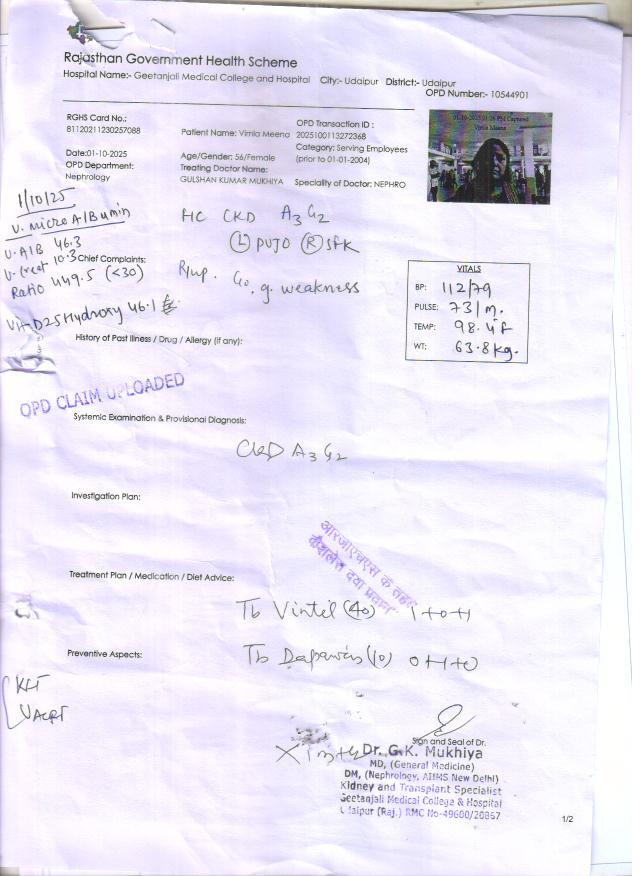 Rajasthan Government Health Scheme
Hospital Name:- Geetanjali Medical College and Hospital City:- Udaipur District:- Udaipur
OPD Number:- 10544901
RGHS Card No.:
81120211230257088
Patient Name: Vimla Meena
OPD Transaction ID :
2025100113272368
Category: Serving Employees
(prior to 01-01-2004)
01-10-2025 01:26 PM Captured
Vimla Meena
Date:01-10-2025
OPD Department:
Nephrology
Age/Gender: 56/Female
Treating Doctor Name:
GULSHAN KUMAR MUKHIYA
Speciality of Doctor: NEPHRO
1/10/25
U. micro Albumin
U. Alb 46.3
U. Creat 10.3
Ratio 449.5 (<30)
Vit-D25 Hydroxy 46.1
Chief Complaints:
CKD A3 G2
(L) PUJO (R) SFK
R/up. c/o. g. weakness
VITALS
BP: 112/79
PULSE: 73/m.
TEMP: 98.4°f
WT: 63.8 kg.
History of Past Illness / Drug / Allergy (if any):
OPD CLAIM UPLOADED
Systemic Examination & Provisional Diagnosis:
CKD A3 G2
Investigation Plan:
आरजीएचएस के तहत
Treatment Plan / Medication / Diet Advice:
Tb Vintel (40) 1+0+1
Preventive Aspects:
Tb (10) 0+1+0
KFT
UACR
Sign and Seal of Dr.
Dr. G.K. Mukhiya
MD, (General Medicine)
DM, (Nephrology, AIIMS New Delhi)
Kidney and Transplant Specialist
Geetanjali Medical College & Hospital
Udaipur (Raj.) RMC No-49600/20867
1/2